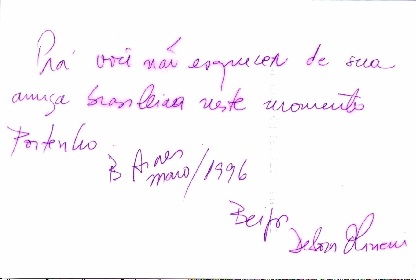 Prá você não esquecer de sua
amiga brasileira neste momento
Portenho.
B Aires
março/1996
Beijos